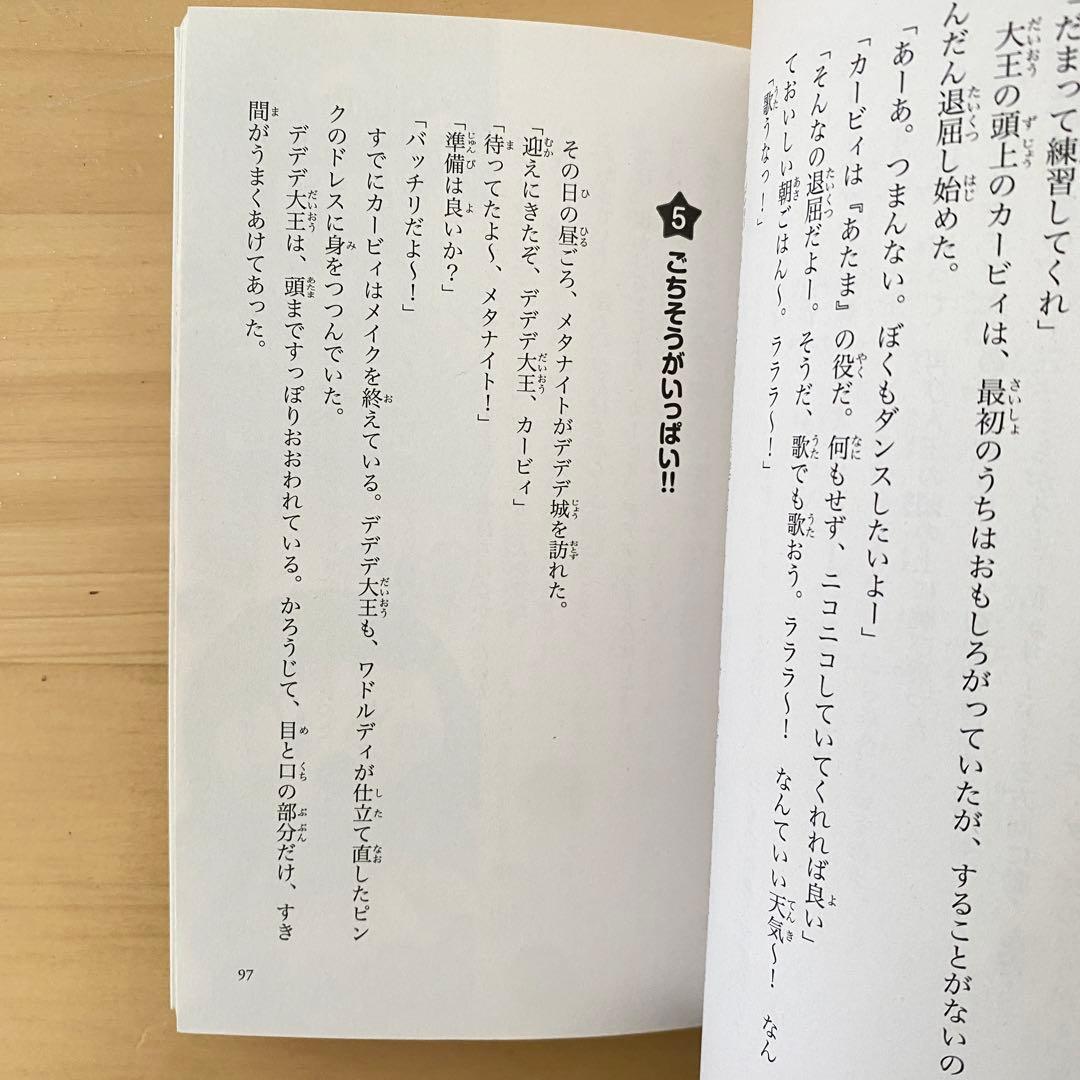 だまって練習してくれ」
大王の頭上のカービィは、最初のうちはおもしろがっていたが、することがないの
んだん退屈し始めた。
「あーあ。つまんない。ぼくもダンスしたいよー」
「カービィは『あたま』の役だ。何もせず、ニコニコしていてくれれば良い」
「そんなの退屈だよー。そうだ、歌でも歌おう。ラララ〜！　なんていい天気〜！　なん
ておいしい朝ごはん〜。ラララ〜！」
「歌うなっ！」
5 ごちそうがいっぱい!!
その日の昼ごろ、メタナイトがデデデ城を訪れた。
「迎えにきたぞ、デデデ大王、カービィ」
「待ってたよ〜、メタナイト！」
「準備は良いか？」
「バッチリだよ〜！」
すでにカービィはメイクを終えている。デデデ大王も、ワドルディが仕立て直したピン
クのドレスに身をつつんでいた。
デデデ大王は、頭まですっぽりおおわれている。かろうじて、目と口の部分だけ、すき
間がうまくあけてあった。
97